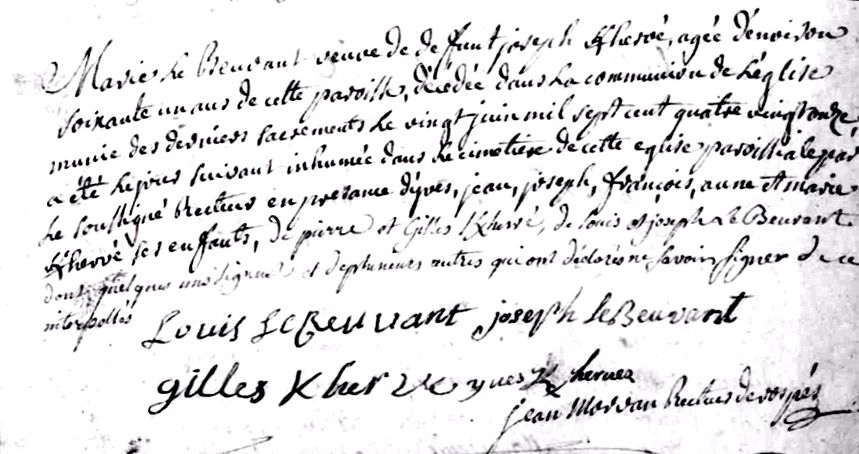 Marie Le Beuvant veuve de defunt joseph Kherve, agée d'environ
soixante un ans de cette paroisse, décédée dans La communion de L'église
munie des derniers sacrements Le vingt juin mil sept cent quatre vingt onze
a été Le jour suivant inhumée dans Le cimetiere de cette eglise paroissiale par
Le soussigné Recteur en presance d'yves, jean, joseph, françois, anne Et marie
Kherve ses enfants, de pierre et Gilles Kherve, de Louis et joseph Le Beuvant
dont quelques uns signent et de plusieurs autres qui ont déclarés ne savoir signer de ce
interpellés
Louis Le Beuvant joseph Le Beuvant
gilles Kherve yves Khervea
jean Morvan Recteur de rospés